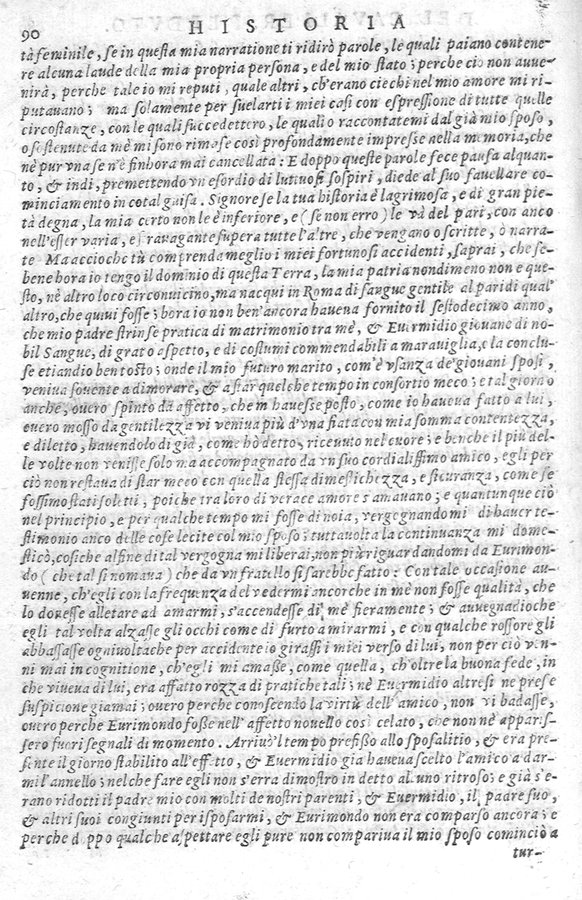 90 HISTORIA
tà feminile, se in questa mia narratione ti ridirò parole, le quali paiano contene-
re alcuna laude della mia propria persona, e del mio stato; perche ciò non auue-
nirà, perche tale io mi reputi, quale altri, ch'erano ciechi nel mio amore mi ri-
putauano; ma solamente per suelarti i miei casi con espressione di tutte quelle
circostanze, con le quali succedettero, le quali ò raccontatemi dal già mio sposo,
o sostenute da mè mi sono rimase così profondamente impresse nella memoria, che
nè pur vna se n'è finhora mai cancellata: E doppo queste parole fece pausa alquan-
to, & indi, premettendo vn esordio di luttuosi sospiri, diede al suo fauellare co-
minciamento in cotal guisa. Signore se la tua historia è lagrimosa, e di gran pie-
tà degna, la mia certo non le è inferiore, e (se non erro) le và del pari, con anco
nell'esser varia, e strauagante supera tutte l'altre, che vengano ò scritte, ò narra-
te Ma accioche tù comprenda meglio i miei fortunosi accidenti, saprai, che se-
bene hora io tengo il dominio di questa Terra, la mia patria nondimeno non è que-
sto, nè altro loco circonuicino, ma nacqui in Roma di sangue gentile al pari di qual
altro, che quiui fosse; hora io non ben'ancora haueua fornito il sestodecimo anno,
che mio padre strinse pratica di matrimonio tra mè, & Euermidio giouane di no-
bil Sangue, di grato aspetto, e di costumi commendabili a marauiglia, e la conclu-
se etiandio ben tosto; onde il mio futuro marito, com'è vsanza de'giouani sposi,
veniua souente a dimorare, & a star quelche tempo in consortio meco; e tal giorno
anche, ouero spinto da affetto, che m hauesse posto, come io haueua fatto a lui,
ouero mosso da gentilezza vi veniua più d'vna fiata con mia somma contentezza,
e diletto, hauendolo di già, come hò detto, riceuuto nel cuore; e benche il più del-
le volte non venisse solo ma accompagnato da vn suo cordialissimo amico, egli per
ciò non restaua di star meco con quella stessa dimestichezza, e sicuranza, come se
fossimo stati soletti, poiche tra loro di verace amore s'amauano; e quantunque ciò
nel principio, e per qualche tempo mi fosse di noia, vergognandomi di hauer te-
stimonio anco delle cose lecite col mio sposo; tuttauolta la continuanza mi dome-
sticò, cosiche al fine di tal vergogna mi liberai, non più riguardandomi da Eurimon-
do (che tal si nomaua) che da vn fratello si sarebbe fatto: Con tale occasione au-
uenne, ch'egli con la frequenza del vedermi ancorche in mè non fosse qualità, che
lo douesse alletare ad amarmi, s'accendesse di mè fieramente; & auuegnadioche
egli tal volta alzasse gli occhi come di furto a mirarmi, e con qualche rossore gli
abbassasse ogniuoltache per accidente io girassi i miei verso di lui, non per ciò ven-
ni mai in cognitione, ch'egli mi amaße, come quella, ch'oltre la buona fede, in
che viueua di lui, era affatto rozza di pratiche tali; nè Euermidio altresi ne prese
suspicione giamai; ouero perche conoscendo la virtù dell'amico, non vi badasse,
ouero perche Eurimondo foße nell'affetto nouello così celato, che non nè apparis-
sero fuori segnali di momento. Arriuò'l tempo prefißo allo sposalitio, & era pre-
sente il giorno stabilito all'effetto, & Euermidio gia haueua scelto l'amico a dar-
mi l'annello; nel che fare egli non s'era dimostro in detto al uno ritroso; e già s'e-
rano ridotti il padre mio con molti de nostri parenti, & Euermidio, il padre suo,
& altri suoi congiunti per isposarmi, & Eurimondo non era comparso ancora; e
perche d ppo qualche aspettare egli pure non compariua il mio sposo cominciò a
tur-